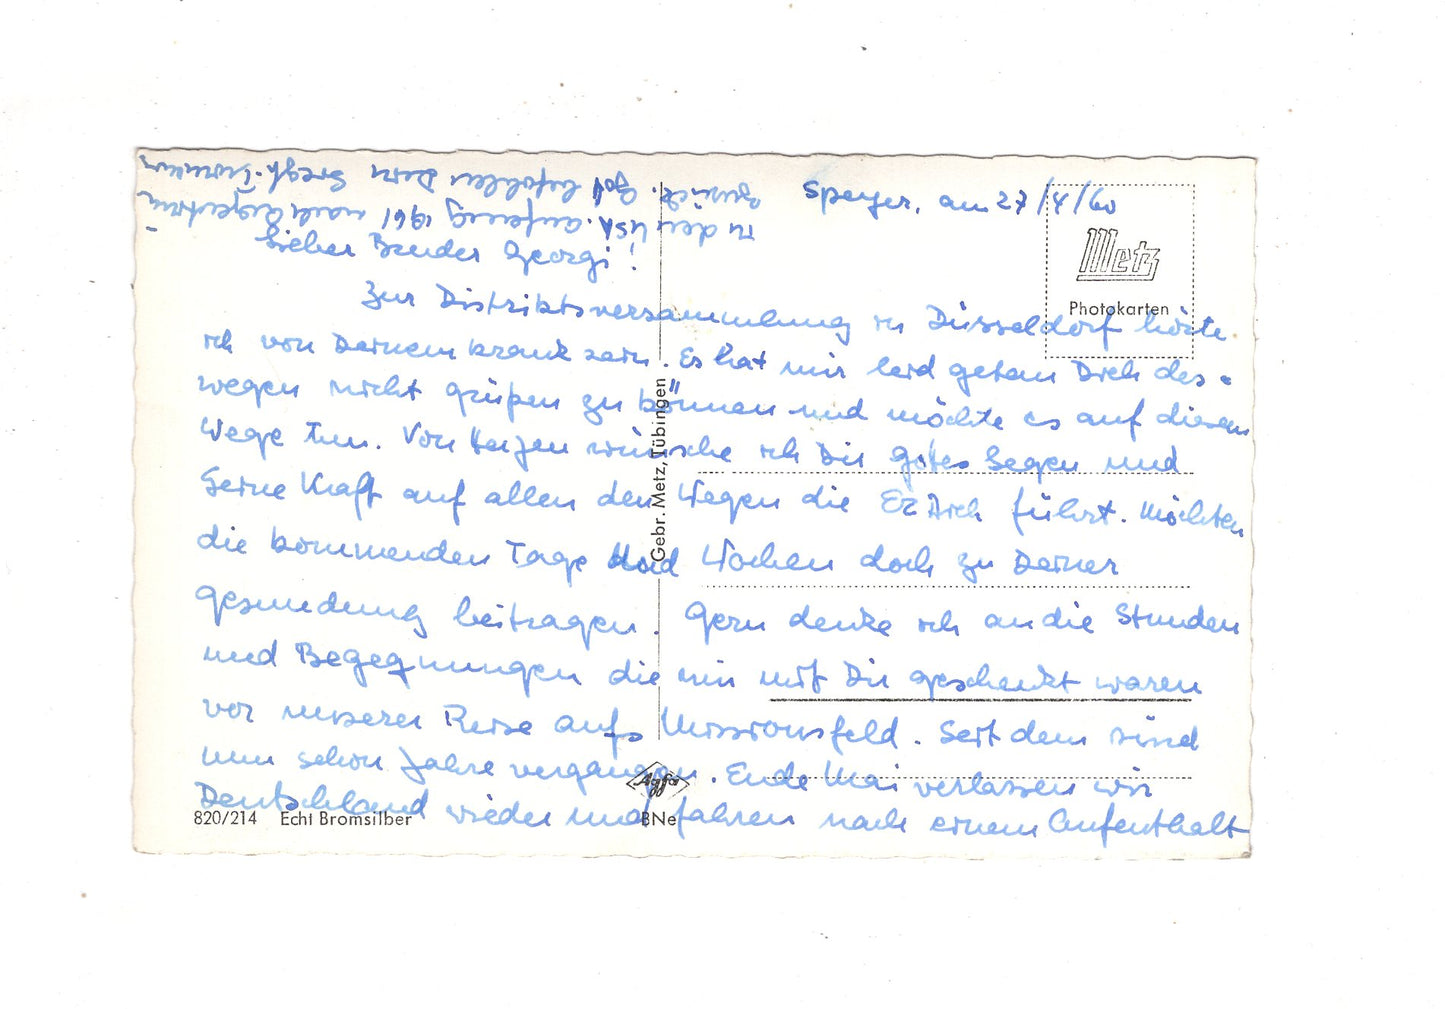 Speyer, am 27/4/60
Lieber Bruder Georgi!
Zur Distriktsversammlung in Düsseldorf hörte
ich von Deinem krank sein. Es hat mir leid getan Dich des=
wegen nicht grüßen zu können und möchte es auf diesem
Wege tun. Von Herzen wünsche ich Dir Gottes Segen und
Seine Kraft auf allen den Wegen die Er Dich führt. Möchten
die kommenden Tage und Wochen doch zu Deiner
Gesundung beitragen. Gern denke ich an die Stunden
und Begegnungen die mir mit Dir geschenkt waren
vor unserer Reise aufs Missionsfeld. Seit dem sind
nun schon Jahre vergangen. Ende Mai verlassen wir
Deutschland wieder und fahren nach einem Aufenthalt
in den USA. anfang 1961 nach Argentinien
zurück. Gott befohlen Dein
Metz
Photokarten
Gebr. Metz, Tübingen
Agfa
820/214 Echt Bromsilber
BNe